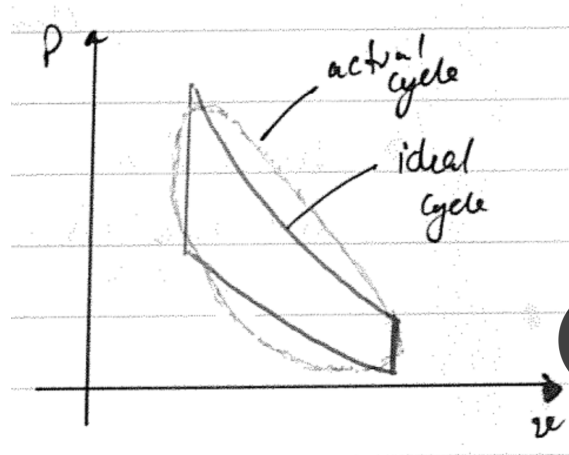 P
actual
cycle
ideal
cycle
v